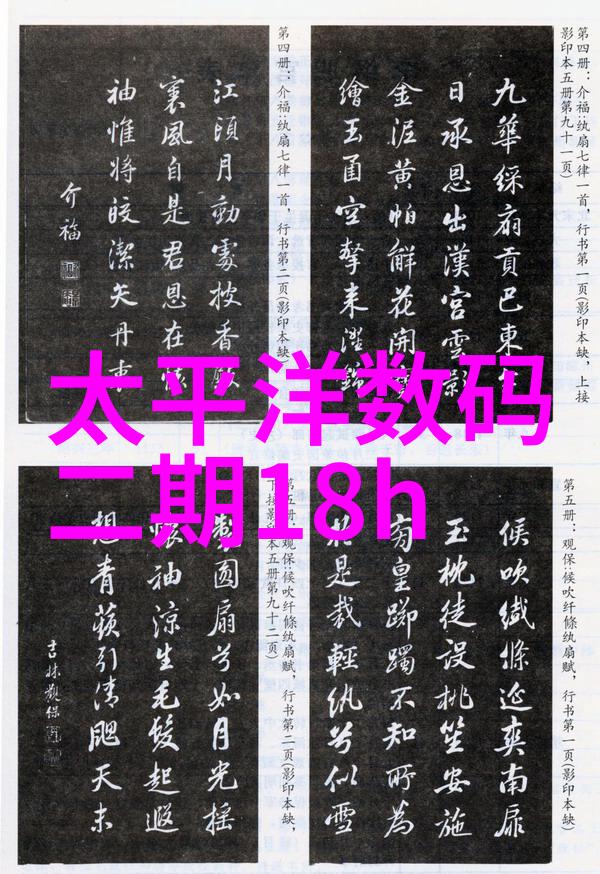 第四册：介福:纨扇七律一首，行书第一页(影印本缺)，上接
影印本五册第九十一页)
九華綵扇貢巴東
日承恩出漢宮雲影
金泥黄帕鮮花開
繪玉函空擎来溼
第四册：介福:纨扇七律一首，行书第二页(影印本缺)
江頭月動處披香殿
裏風自是君恩在懷
袖惟将皎潔矢丹
介福
太平洋数码
二期18h
第五册：观保:候吹纤絛纨扇赋，行书第一页(影印本缺)
候吹纖絛延爽南扉
玉枕徒设桃笙安施
皇躑躅不知所為
是裁輕纨兮似雪
第五册：观保:候吹纤絛纨扇赋，行书第二页(影印本缺，
下接影印本五册第九十二页)
製圆扇兮如月光摇
懷袖涼生毛髮起遐
想青蘋引清飔天末
吉林觀保